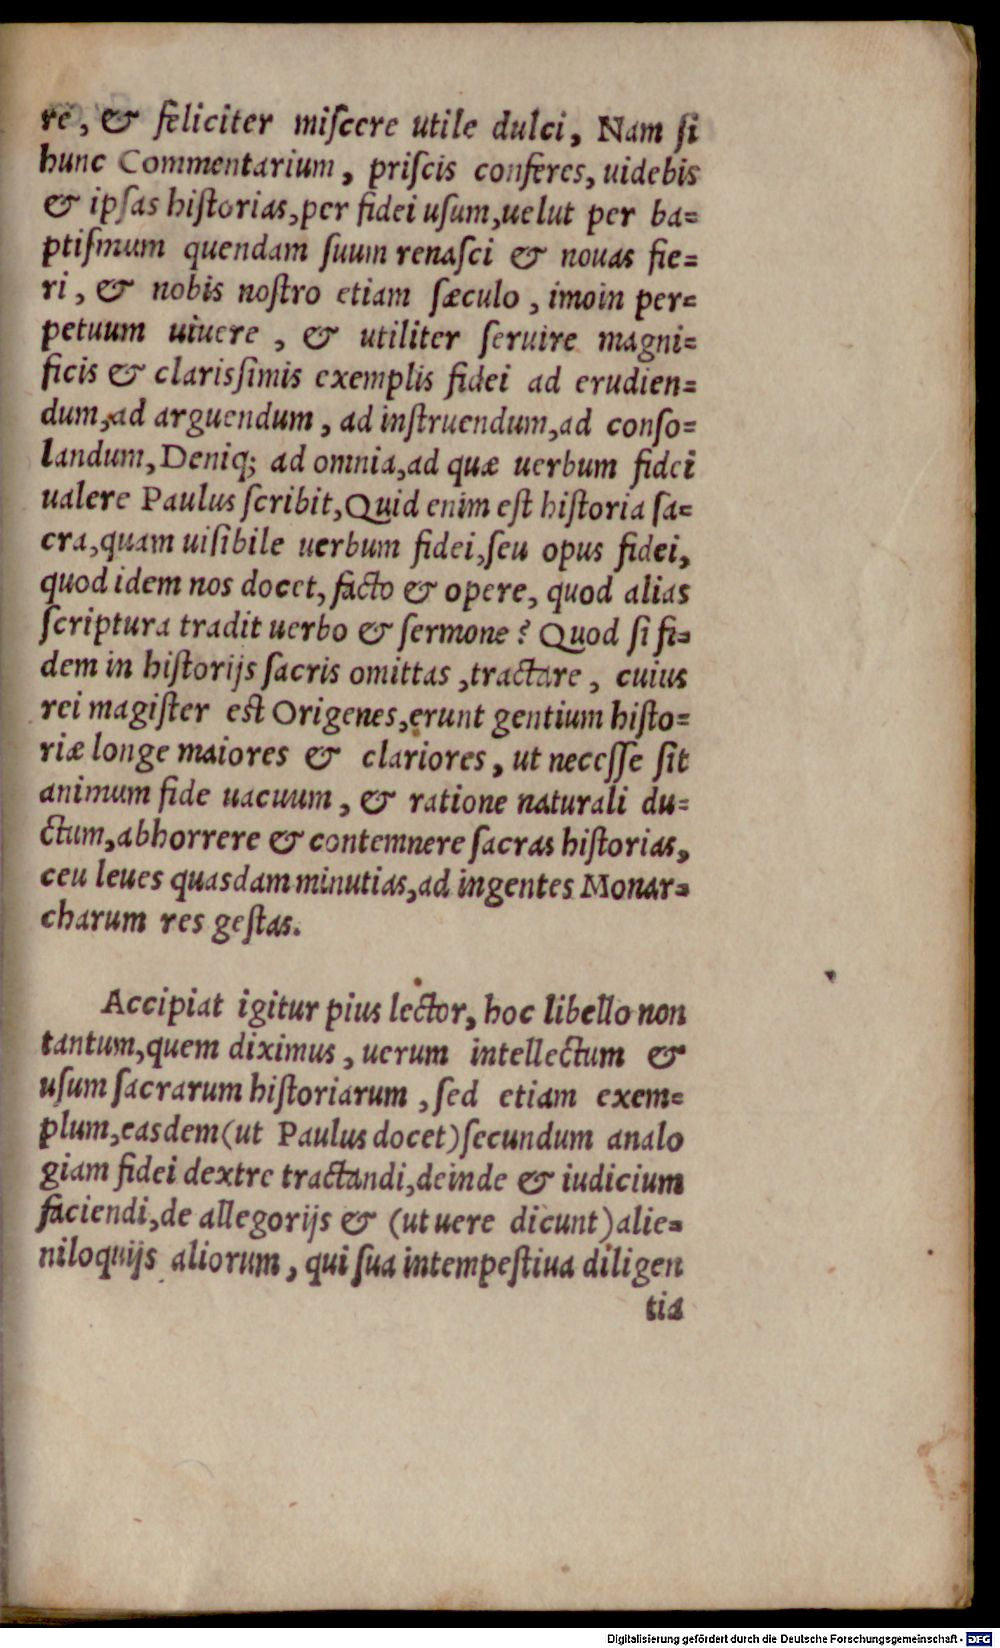 re, & feliciter miſcere utile dulci, Nam ſi
hunc Commentarium, priſcis conferes, uidebis
& ipſas hiſtorias, per fidei uſum, uelut per ba=
ptiſmum quendam ſuum renaſci & nouas fie=
ri, & nobis noſtro etiam ſæculo, imoin per=
petuum uiuere, & utiliter ſeruire magni=
ficis & clarisſimis exemplis fidei ad erudien=
dum, ad arguendum, ad inſtruendum, ad conſo=
landum, Deniq; ad omnia, ad quæ uerbum fidei
ualere Paulus ſcribit, Quid enim eſt hiſtoria ſa=
cra, quam uiſibile uerbum fidei, ſeu opus fidei,
quod idem nos docet, facto & opere, quod alias
ſcriptura tradit uerbo & ſermone? Quod ſi fi=
dem in hiſtorijs ſacris omittas, tractare, cuius
rei magiſter est Origenes, erunt gentium hiſto=
riæ longe maiores & clariores, ut neceſſe ſit
animum fide uacuum, & ratione naturali du=
ctum, abhorrere & contemnere ſacras hiſtorias,
ceu leues quasdam minutias, ad ingentes Monar=
charum res geſtas.
Accipiat igitur pius lector, hoc libello non
tantum, quem diximus, uerum intellectum &
uſum ſacrarum hiſtoriarum, ſed etiam exem=
plum, easdem (ut Paulus docet) ſecundum analo
giam fidei dextre tractandi, deinde & iudicium
faciendi, de allegorijs & (ut uere dicunt) alie=
niloquijs aliorum, qui ſua intempeſtiua diligen
tia
Digitalisierung gefördert durch die Deutsche Forschungsgemeinschaft - DFG